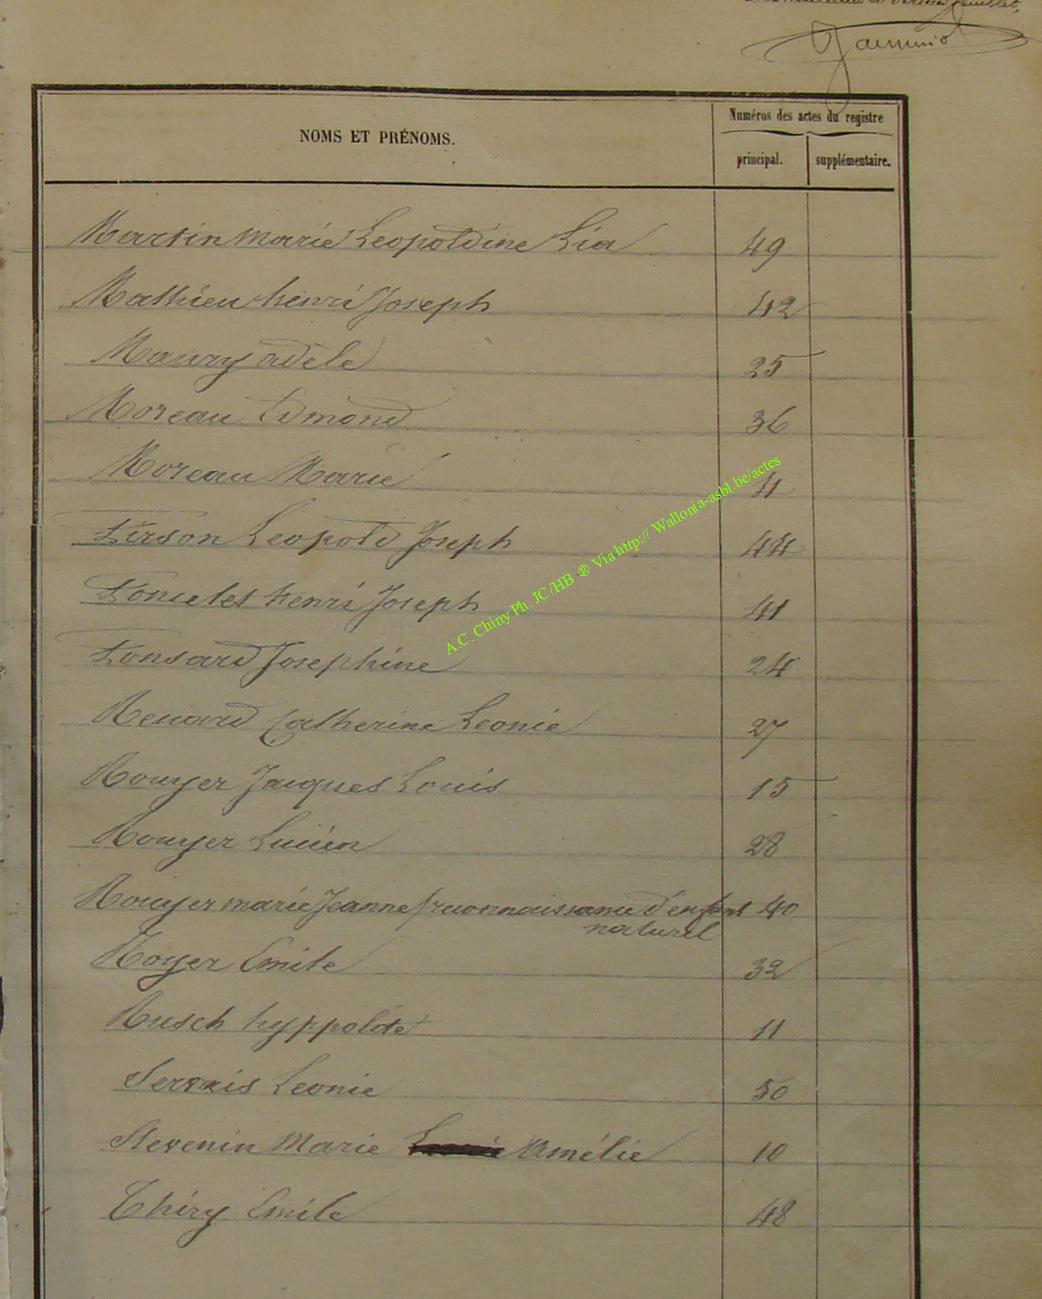 Jaeminio
Numéros des actes du registre
NOMS ET PRÉNOMS.
principal. supplémentaire.
Martin Marie Leopoldine Lia 49
Mathieu henri Joseph 42
Maury adèle 25
Moreau Edmond 36
Moreau Marie 4
Pierson Leopold Joseph 44
Poncelet henri Joseph 41
Ponsard Josephine 24
Renard Catherine Leonie 27
Rouyer Jacques Louis 15
Rouyer Lucien 28
Rouyer marie Jeanne (reconnaissance d'enfant 40
naturel
Royer Emile 32
Rusch hyppolite 11
Servais Leonie 50
Stevenin Marie Amélie 10
Thiry Emile 48
A.C. Chiny Ph. JC /HB ® Via http:// Wallonia-asbl.be/actes